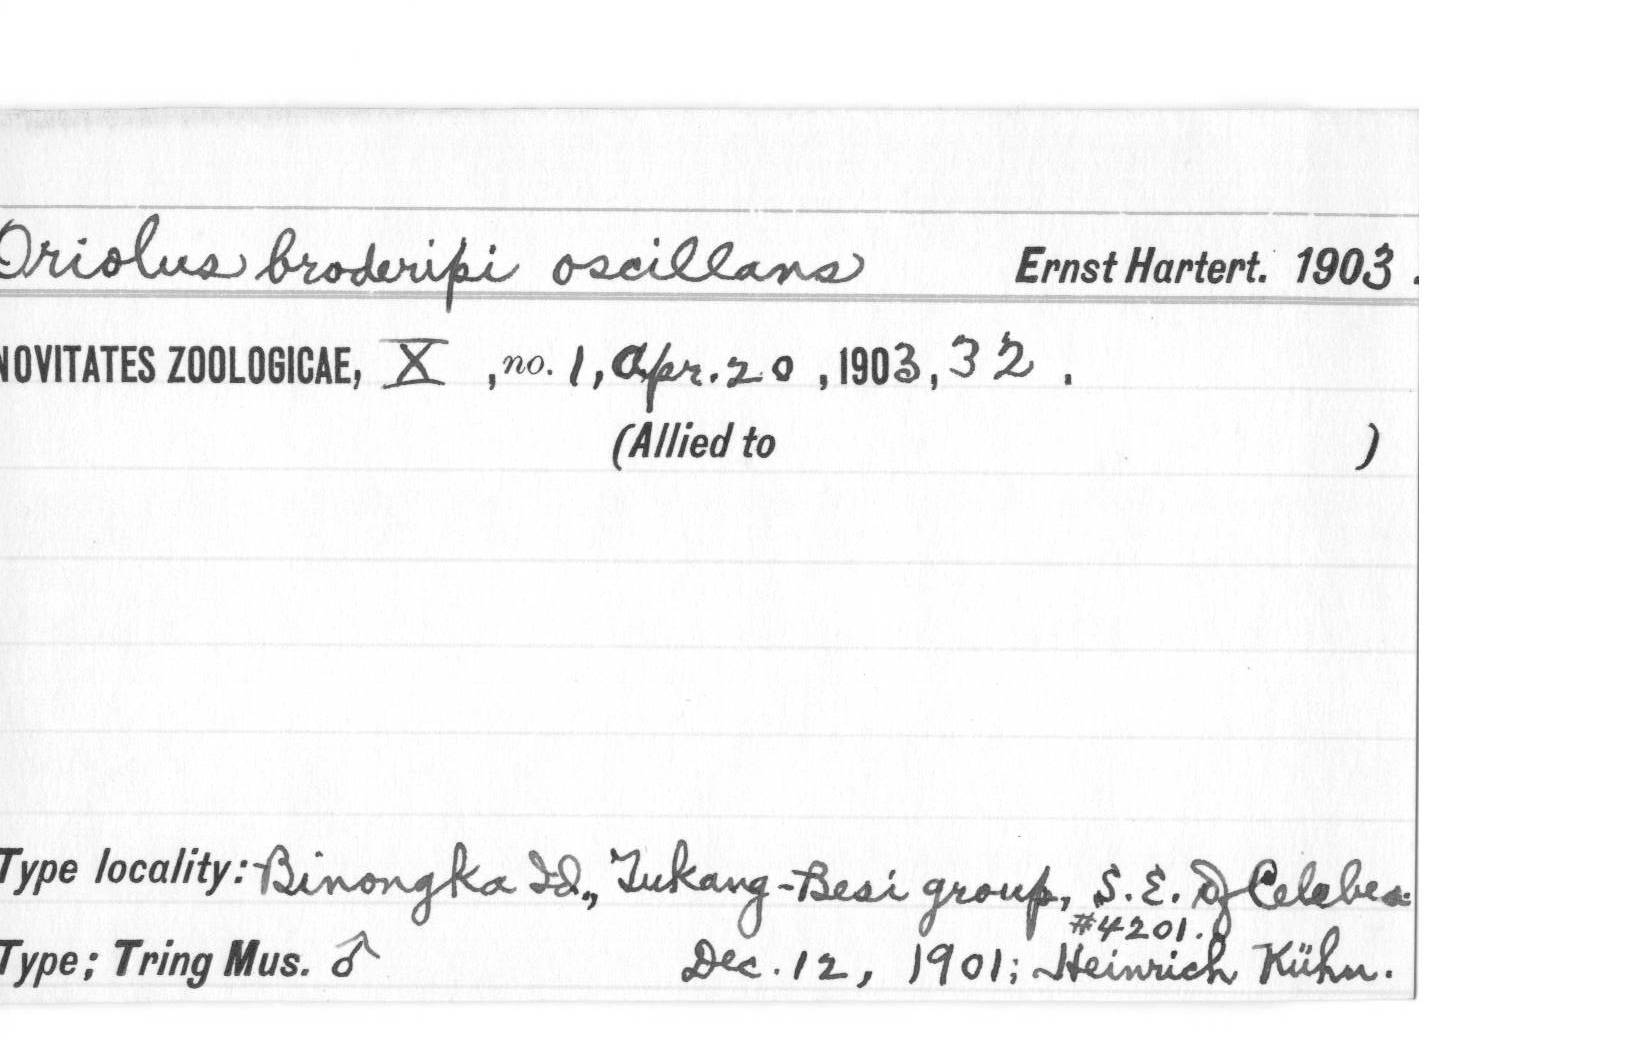 Oriolus broderipi oscillans Ernst Hartert. 1903.
NOVITATES ZOOLOGICAE, X, no. 1, Apr. 20, 1903, 32.
(Allied to )
Type locality: Binongka Id., Tukang-Besi group, S.E. of Celebes.
#4201.
Type; Tring Mus. ♂ Dec. 12, 1901; Heinrich Kühn.